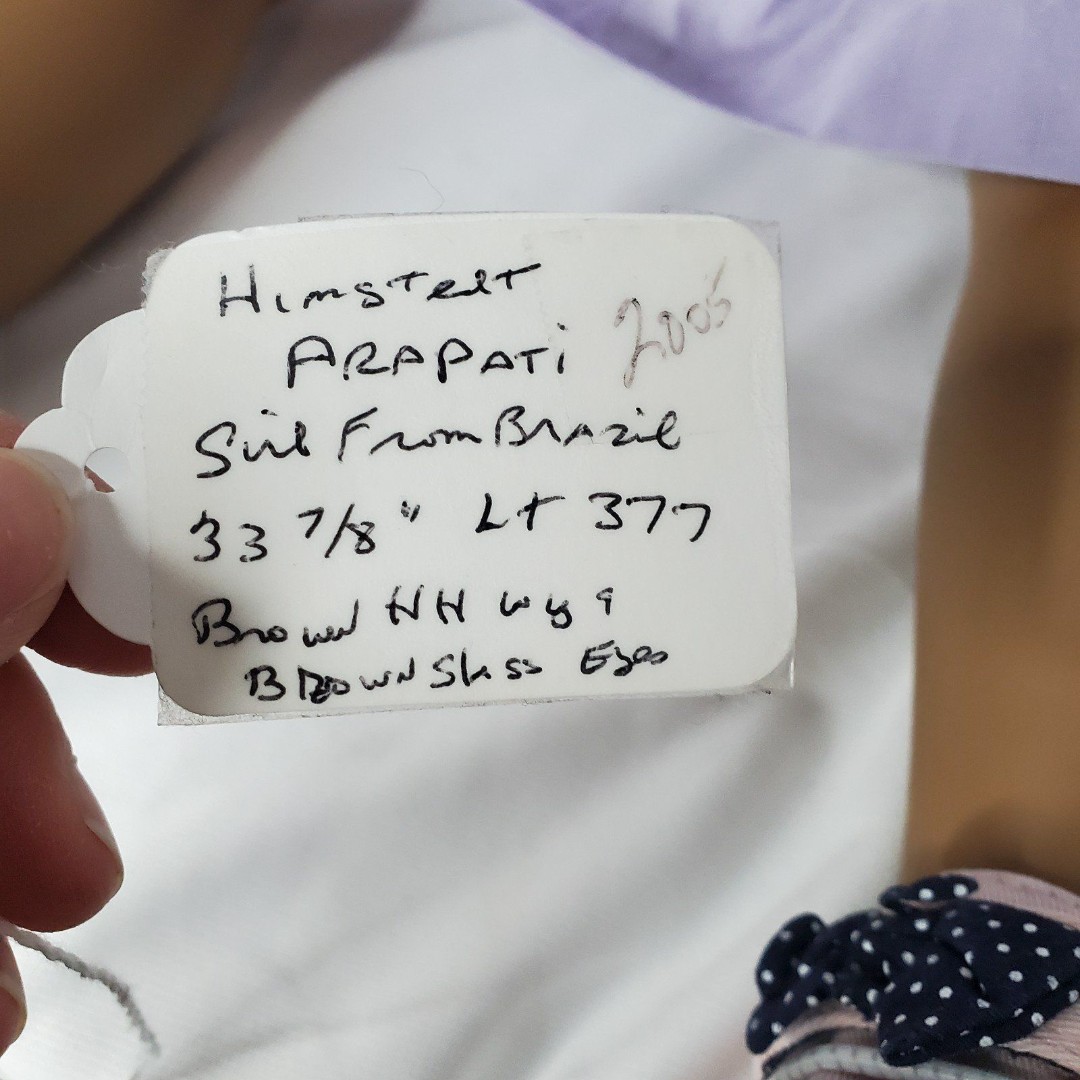 Himstedt
ARAPATI 2005
Girl From Brazil
33 7/8" Lt 377
Brown HH wig
Brown Glass Eyes